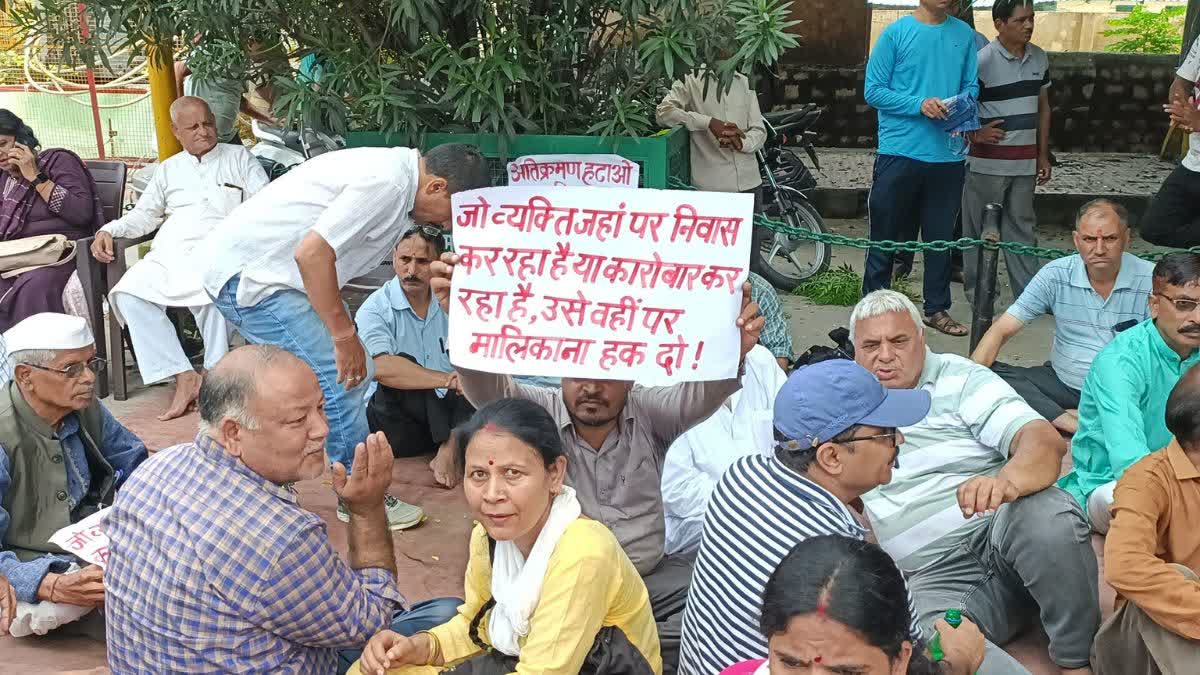 अतिक्रमण हटाओ
जो व्यक्ति जहां पर निवास
कर रहा है या कारोबार कर
रहा है, उसे वहीं पर
मालिकाना हक दो!
जो व